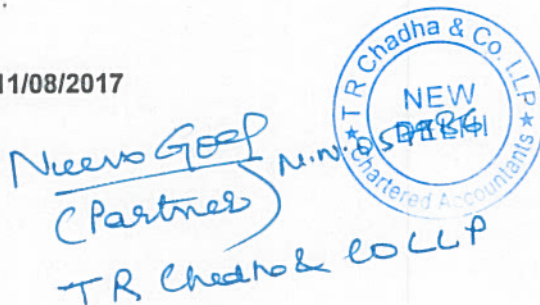 11/08/2017
T R Chadha & Co. LLP
NEW
DELHI
Chartered Accountants
Goel
(Partner)
M.N.
T R Chadha & CO LLP